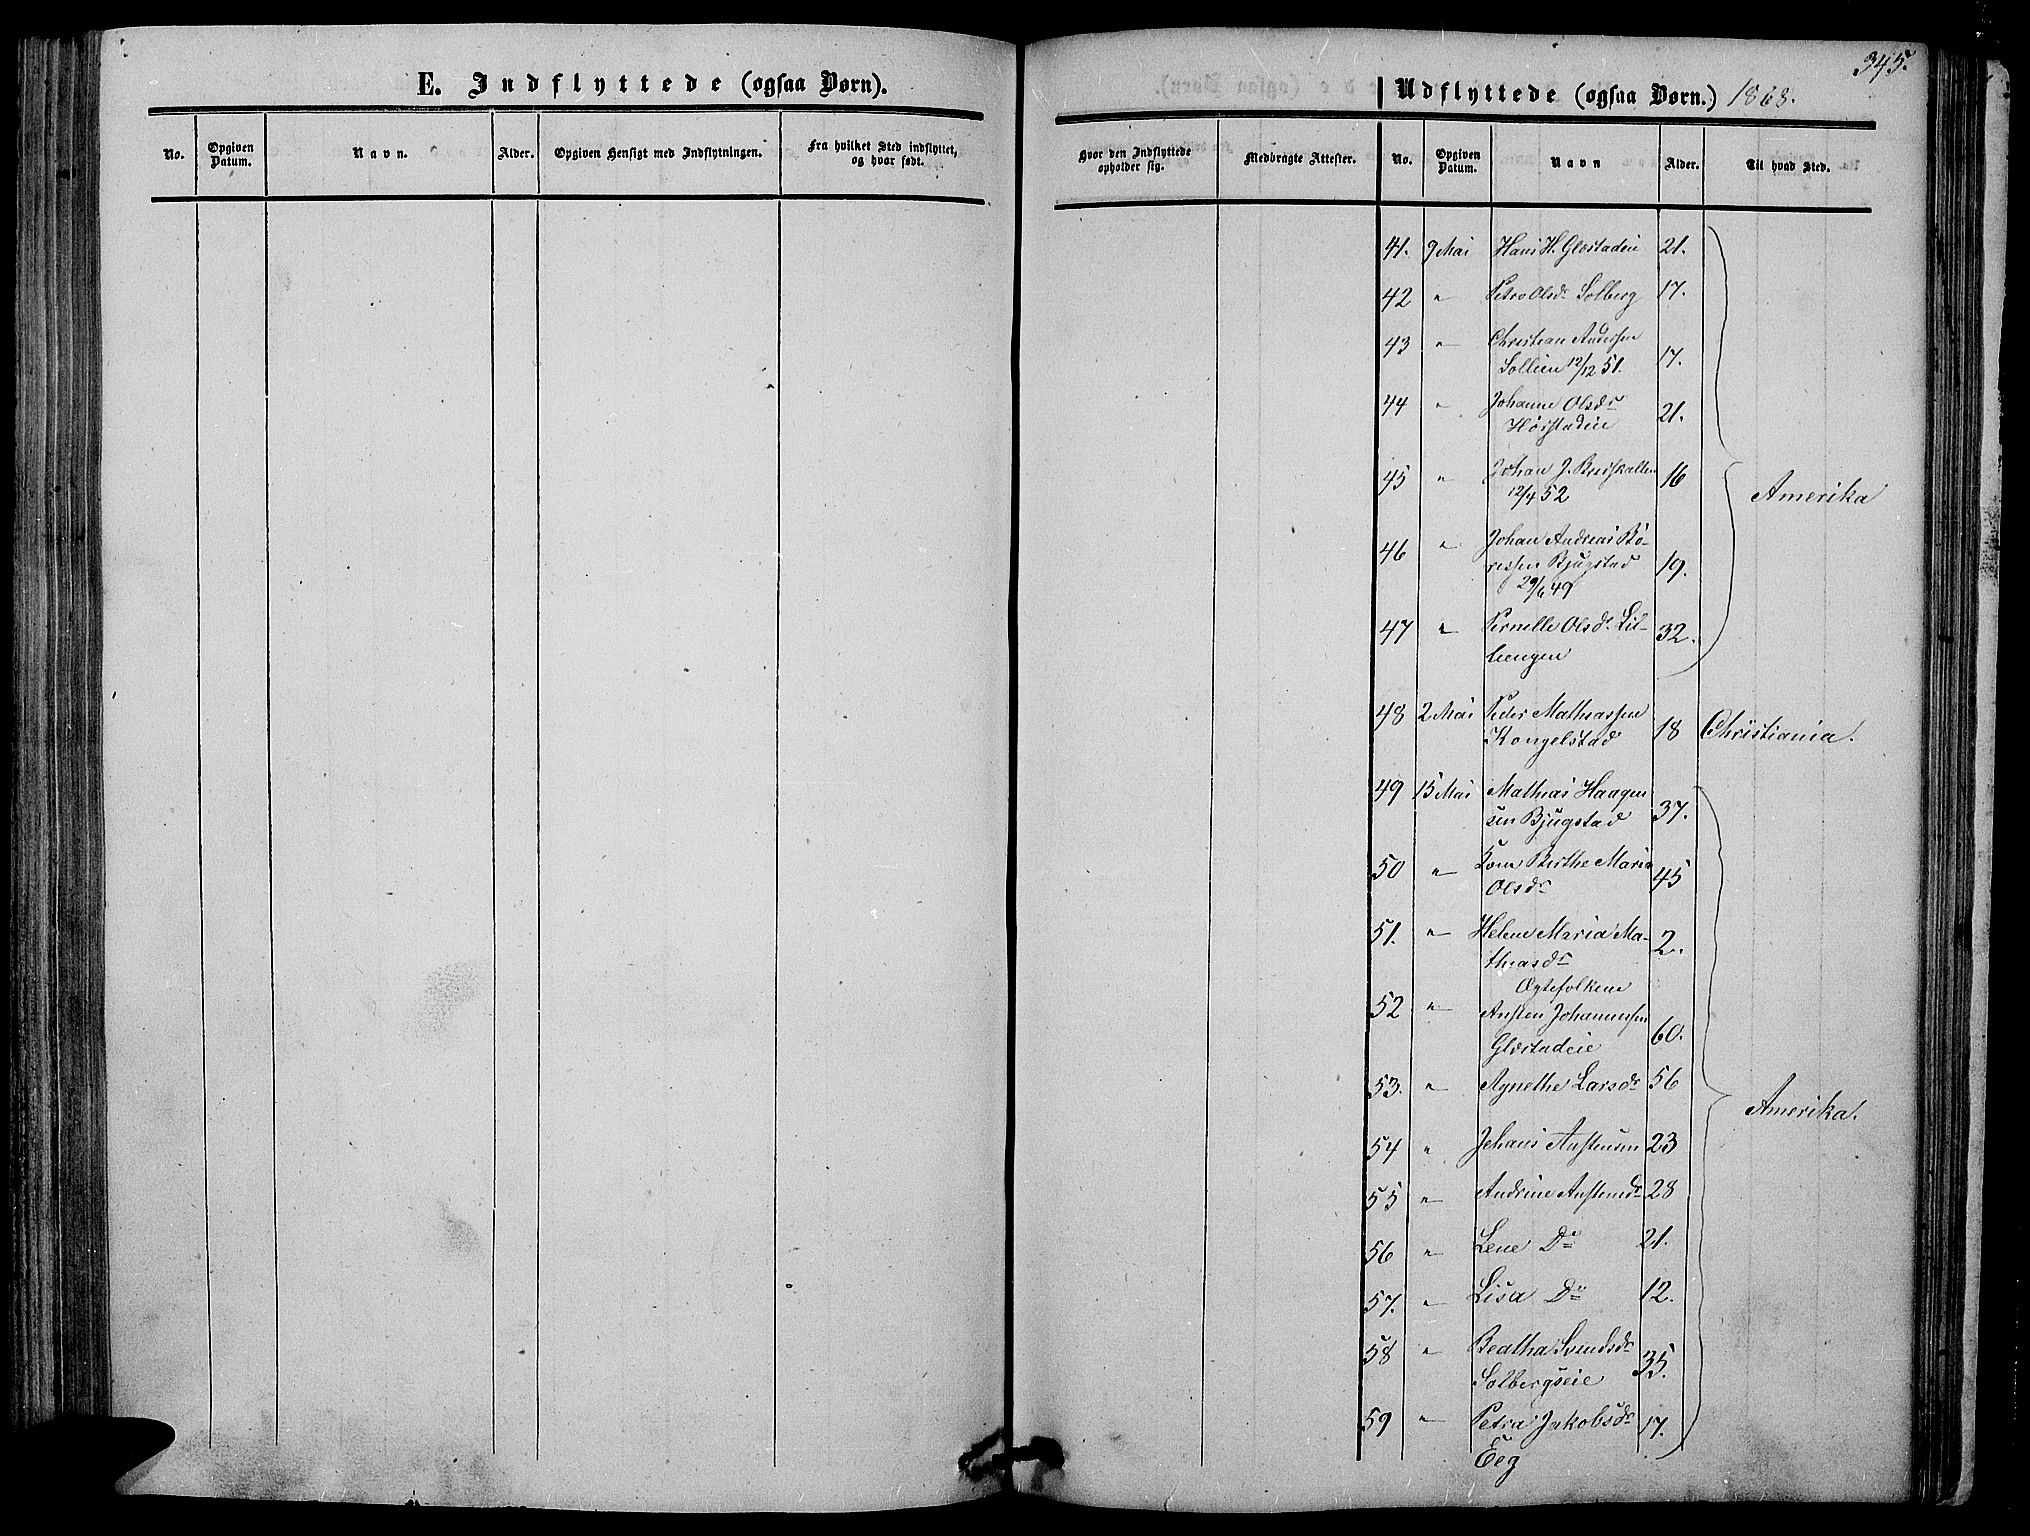 345.
E. Indflyttede (ogsaa Børn).
Udflyttede (ogsaa Børn.) 1868.
No. Opgiven Datum. Navn. Alder. Opgiven Hensigt med Indflytningen. Fra hvilket Sted indflyttet, og hvor født.
Hvor den Indflyttede opholder sig. Medbragte Attester. No. Opgiven Datum. Navn Alder. Til hvad Sted.
41. 9 Mai Hans H. Glæstadeie 21.
42 " Petra Olsdr Solberg 17.
43 " Christian Andersen
Sollien 12/12 51. 17.
44 " Johanne Olsdr
Hørstadeie 21.
45 " Johan J. Breiskallen 16
12/4 52
Amerika
46 " Johan Andreas Bø-
ressen Bjugstad 19.
29/6 49
47 " Pernelle Olsdr Lil-
leengen 32.
48 2 Mai Peder Mathiassen
Kongelstad 18 Christiania.
49 15 Mai Mathias Haagen
sen Bjugstad 37.
50 " Kone Berthe Maria
Olsdr 45
51. " Helene Maria Ma-
thiasdr 2.
Ægtefolkene
52 " Austen Johannesen
Glæstadeie 60.
53. " Agnethe Larsdr 56
Amerika.
54 " Johans Austensen 23
55 " Andrine Austensdr 28
56 " Lene Do 21.
57. " Lisa Do 12.
58 " Beatha Svendsdr
Solbergseie 35.
59 " Petra Jakobsdr 17.
Eeg